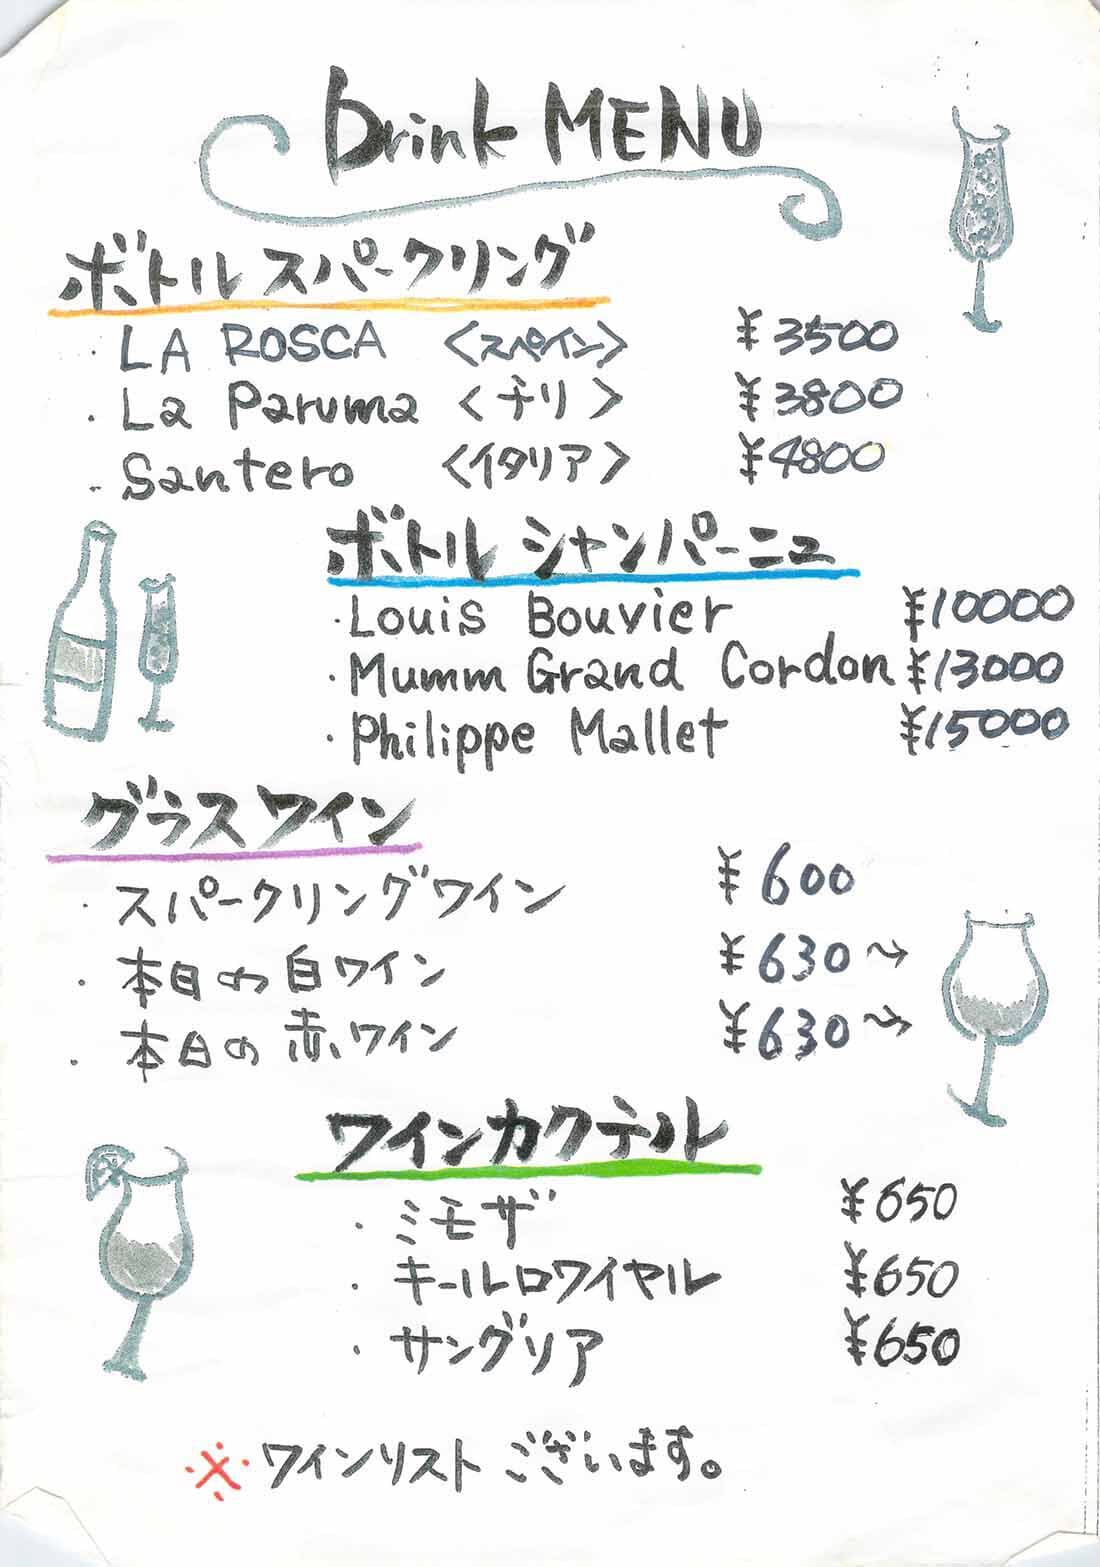 Drink MENU
ボトルスパークリング
・LA ROSCA 〈スペイン〉 ¥3500
・La Paruma 〈チリ〉 ¥3800
・Santero 〈イタリア〉 ¥4800
ボトル シャンパーニュ
・Louis Bouvier ¥10000
・Mumm Grand Cordon ¥13000
・Philippe Mallet ¥15000
グラスワイン
・スパークリングワイン ¥600
・本日の白ワイン ¥630〜
・本日の赤ワイン ¥630〜
ワインカクテル
・ミモザ ¥650
・キールロワイヤル ¥650
・サングリア ¥650
※ワインリストございます。